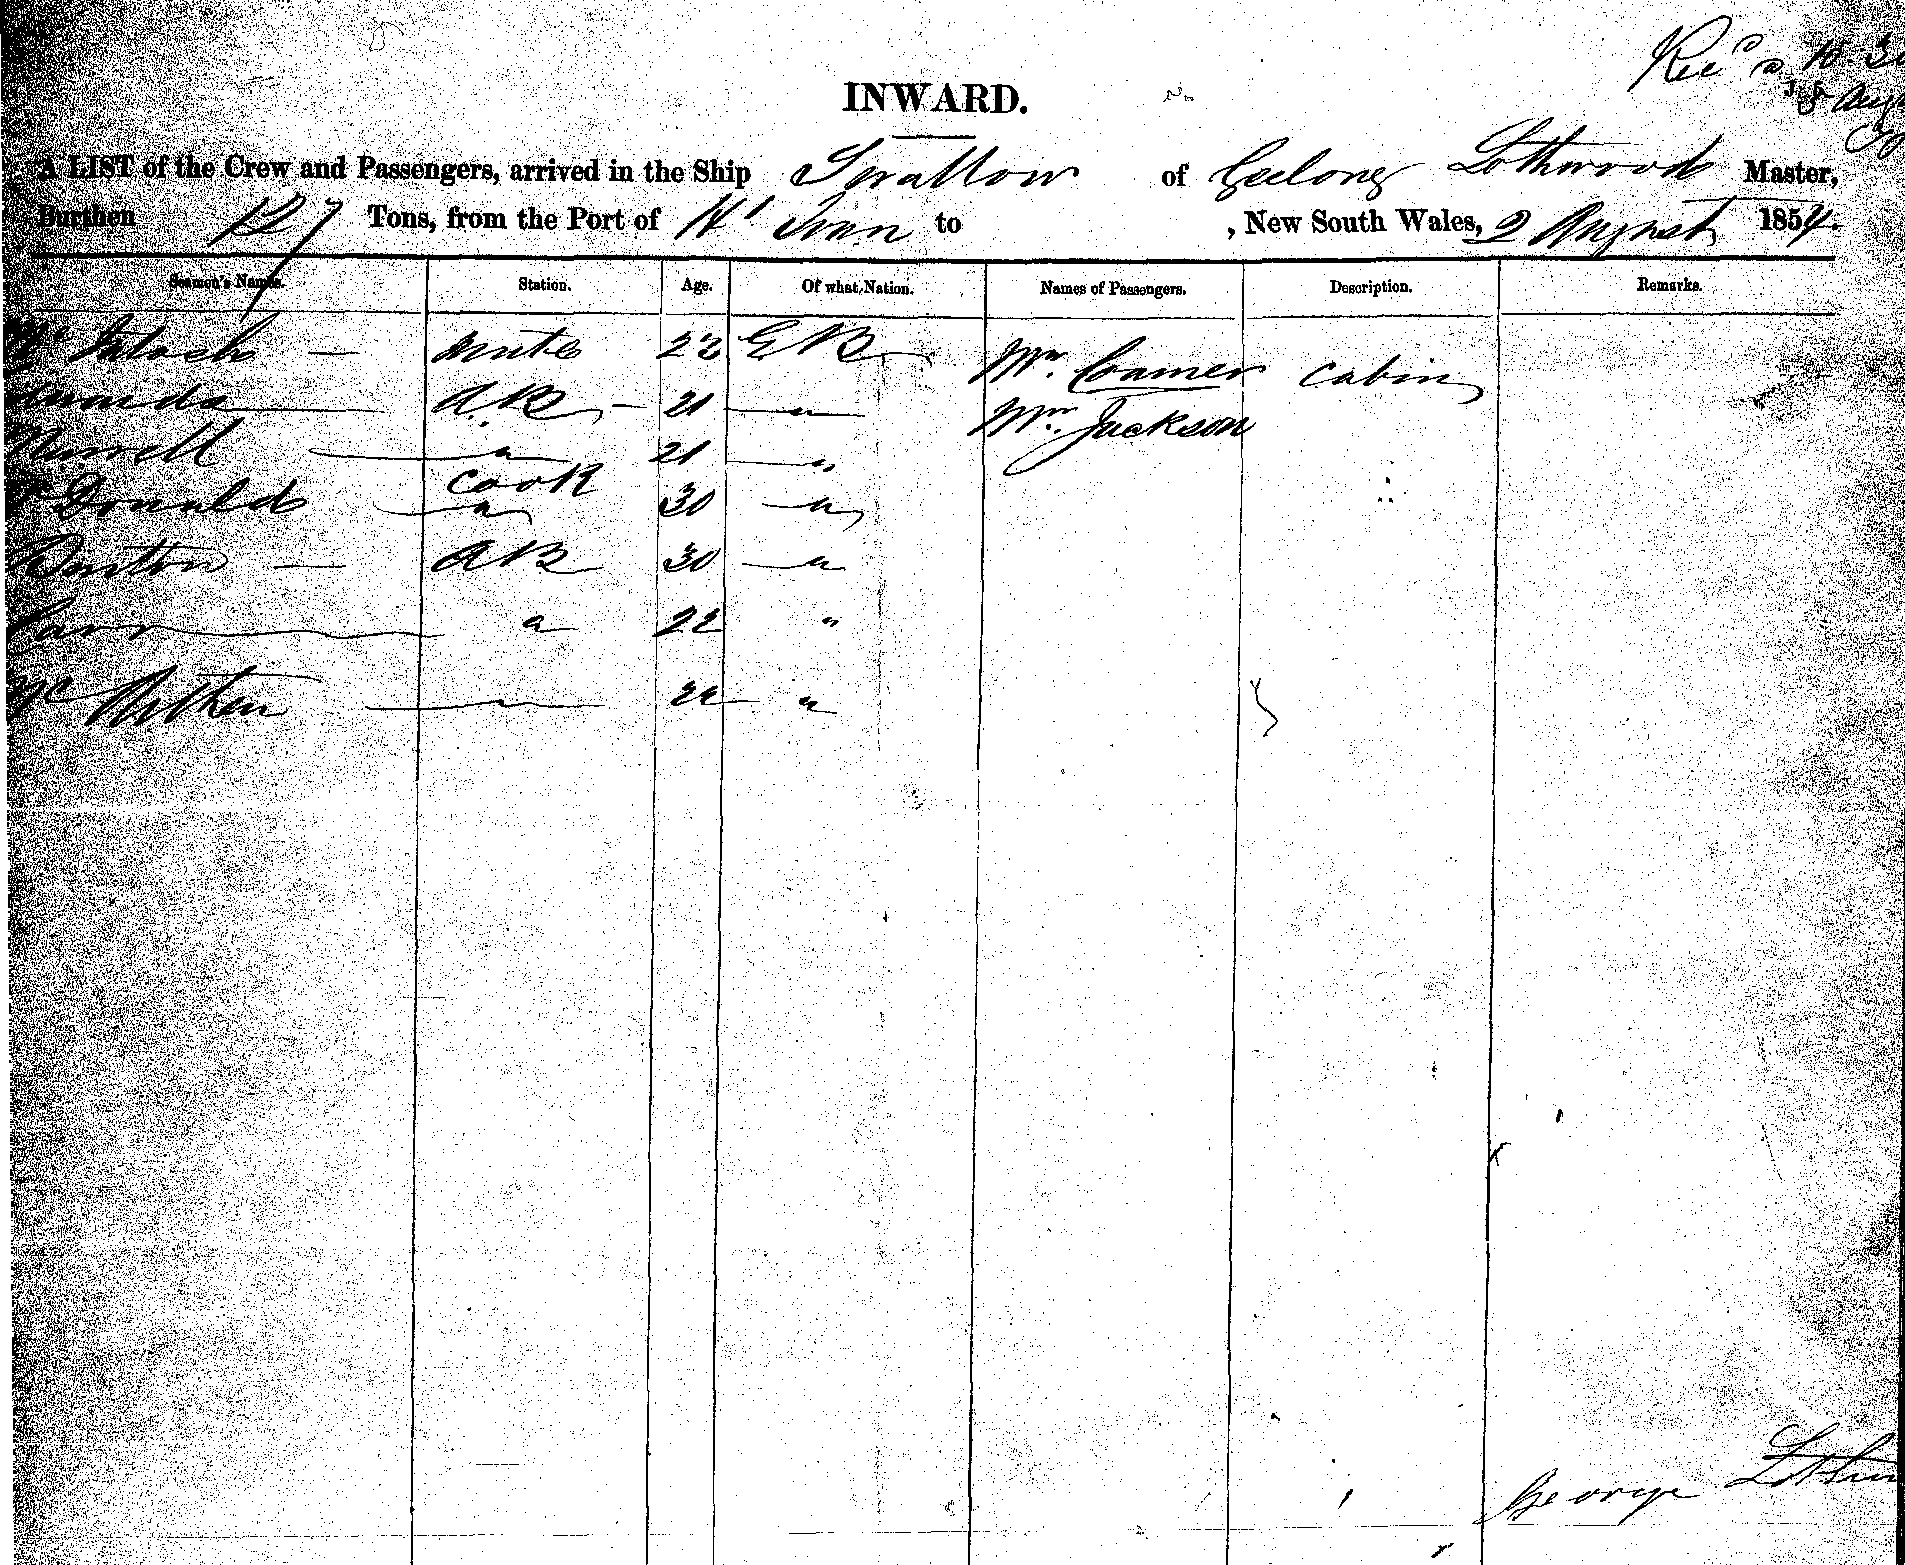 Rec'd
INWARD.
A LIST of the Crew and Passengers, arrived in the Ship Swallow of Geelong Lothwood Master,
Burthen 127 Tons, from the Port of to , New South Wales, 2 August 1854.
Seamen's Names. Station. Age. Of what Nation. Names of Passengers. Description. Remarks.
mate 22 G B Mr. Cramer cabin
A.B. 21 " Mr. Jackson
Murrell " 21 "
Mc Donald cook 30 "
Denton AB 30 "
Carr " 22 "
Mc 22 "
George